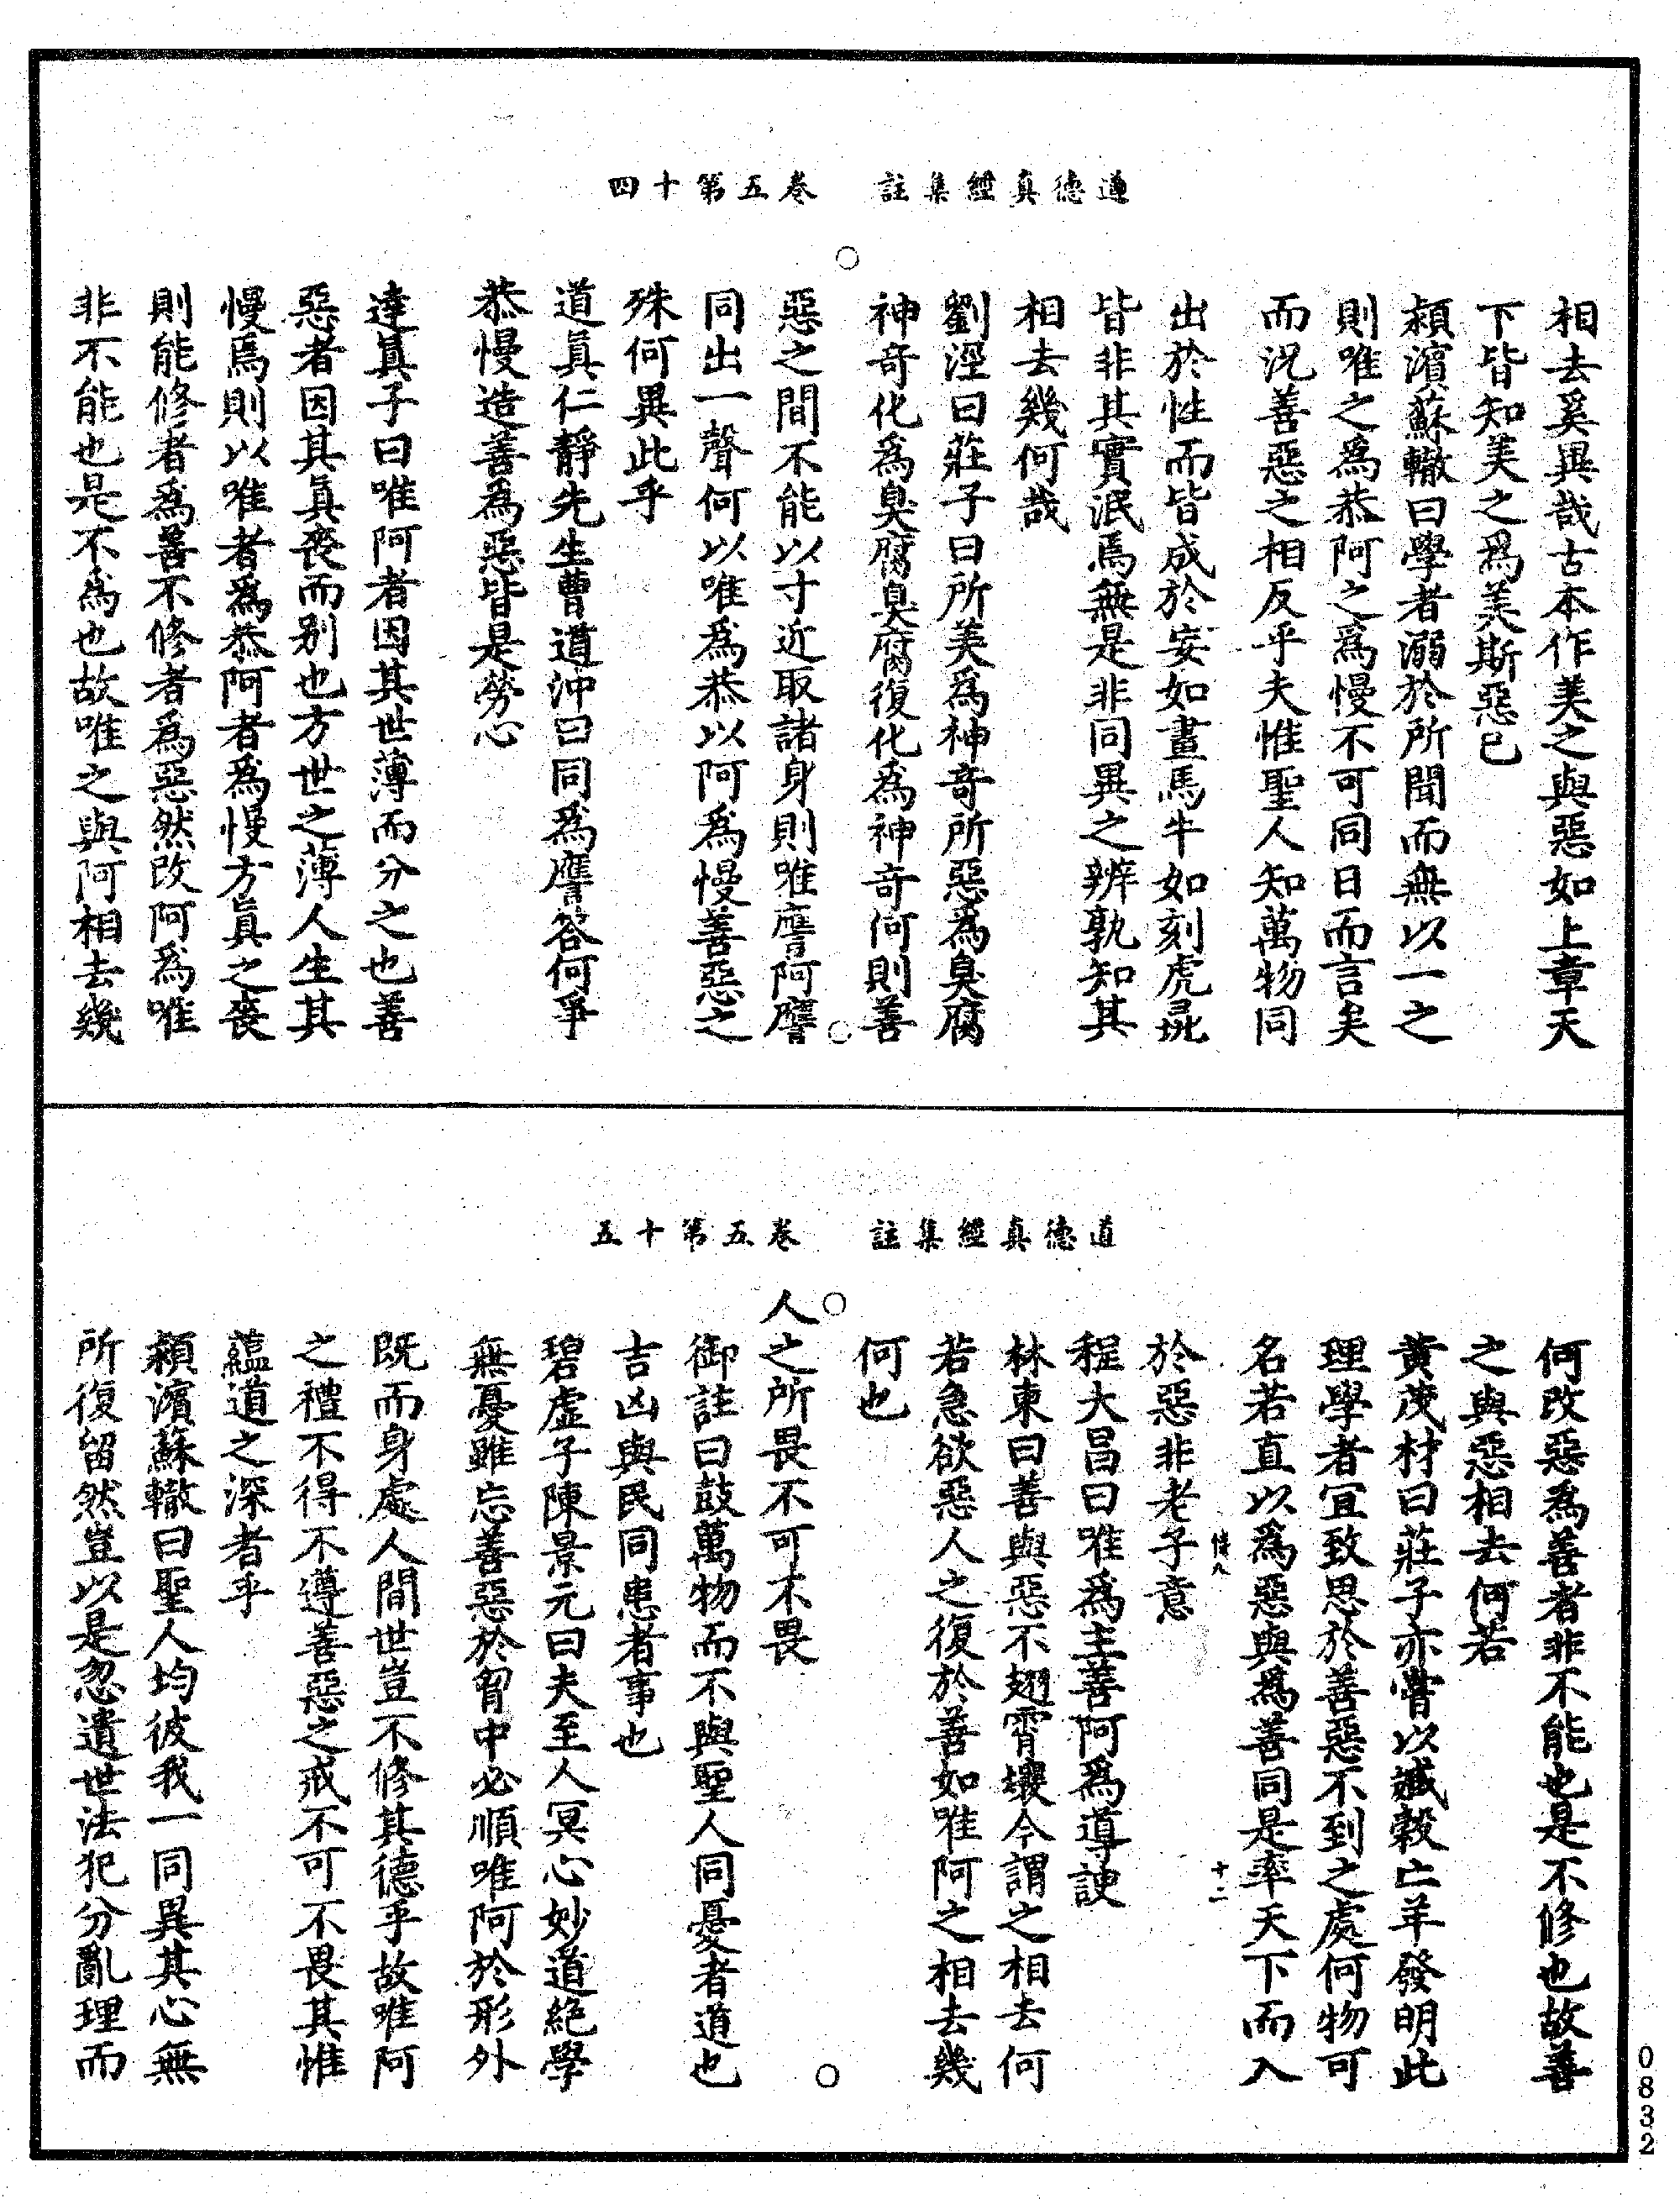 道德真經集註　卷五第十四
相去奚異哉古本作美之與惡如上章天
下皆知美之爲美斯惡已
潁濱蘇轍曰學者溺於所聞而無以一之
則唯之爲恭阿之爲慢不可同日而言矣
而況善惡之相反乎夫惟聖人知萬物同
出於性而皆成於妄如畫馬牛如刻虎彘
皆非其實泯焉無是非同異之辨孰知其
相去幾何哉
劉涇曰莊子曰所美爲神奇所惡爲臭腐
神奇化爲臭腐臭腐復化爲神奇何則善
惡之間不能以寸近取諸身則唯譍阿譍
同出一聲何以唯爲恭以阿爲慢善惡之
殊何異此乎
道眞仁靜先生曹道沖曰同爲譍答何爭
恭慢造善爲惡皆是勞心
達眞子曰唯阿者因其世薄而分之也善
惡者因其眞喪而别也方世之薄人生其
慢焉則以唯者爲恭阿者爲慢方眞之喪
則能修者爲善不修者爲惡然改阿爲唯
非不能也是不爲也故唯之與阿相去幾
道德真經集註　卷五第十五
何改惡爲善者非不能也是不修也故善
之與惡相去何若
黃茂材曰莊子亦嘗以臧穀亡羊發明此
理學者宜致思於善惡不到之處何物可
名若直以爲惡與爲善同是率天下而入
十二
於惡非老子意
程大昌曰唯爲主善阿爲導諛
林東曰善與惡不翅霄壤今謂之相去何
若急欲惡人之復於善如唯阿之相去幾
何也
人之所畏不可不畏
御註曰鼓萬物而不與聖人同憂者道也
吉凶與民同患者事也
碧虛子陳景元曰夫至人冥心妙道絕學
無憂雖忘善惡於胷中必順唯阿於形外
既而身處人間世豈不修其德乎故唯阿
之禮不得不遵善惡之戒不可不畏其惟
蘊道之深者乎
潁濱蘇轍曰聖人均彼我一同異其心無
所復留然豈以是忽遺世法犯分亂理而
0832